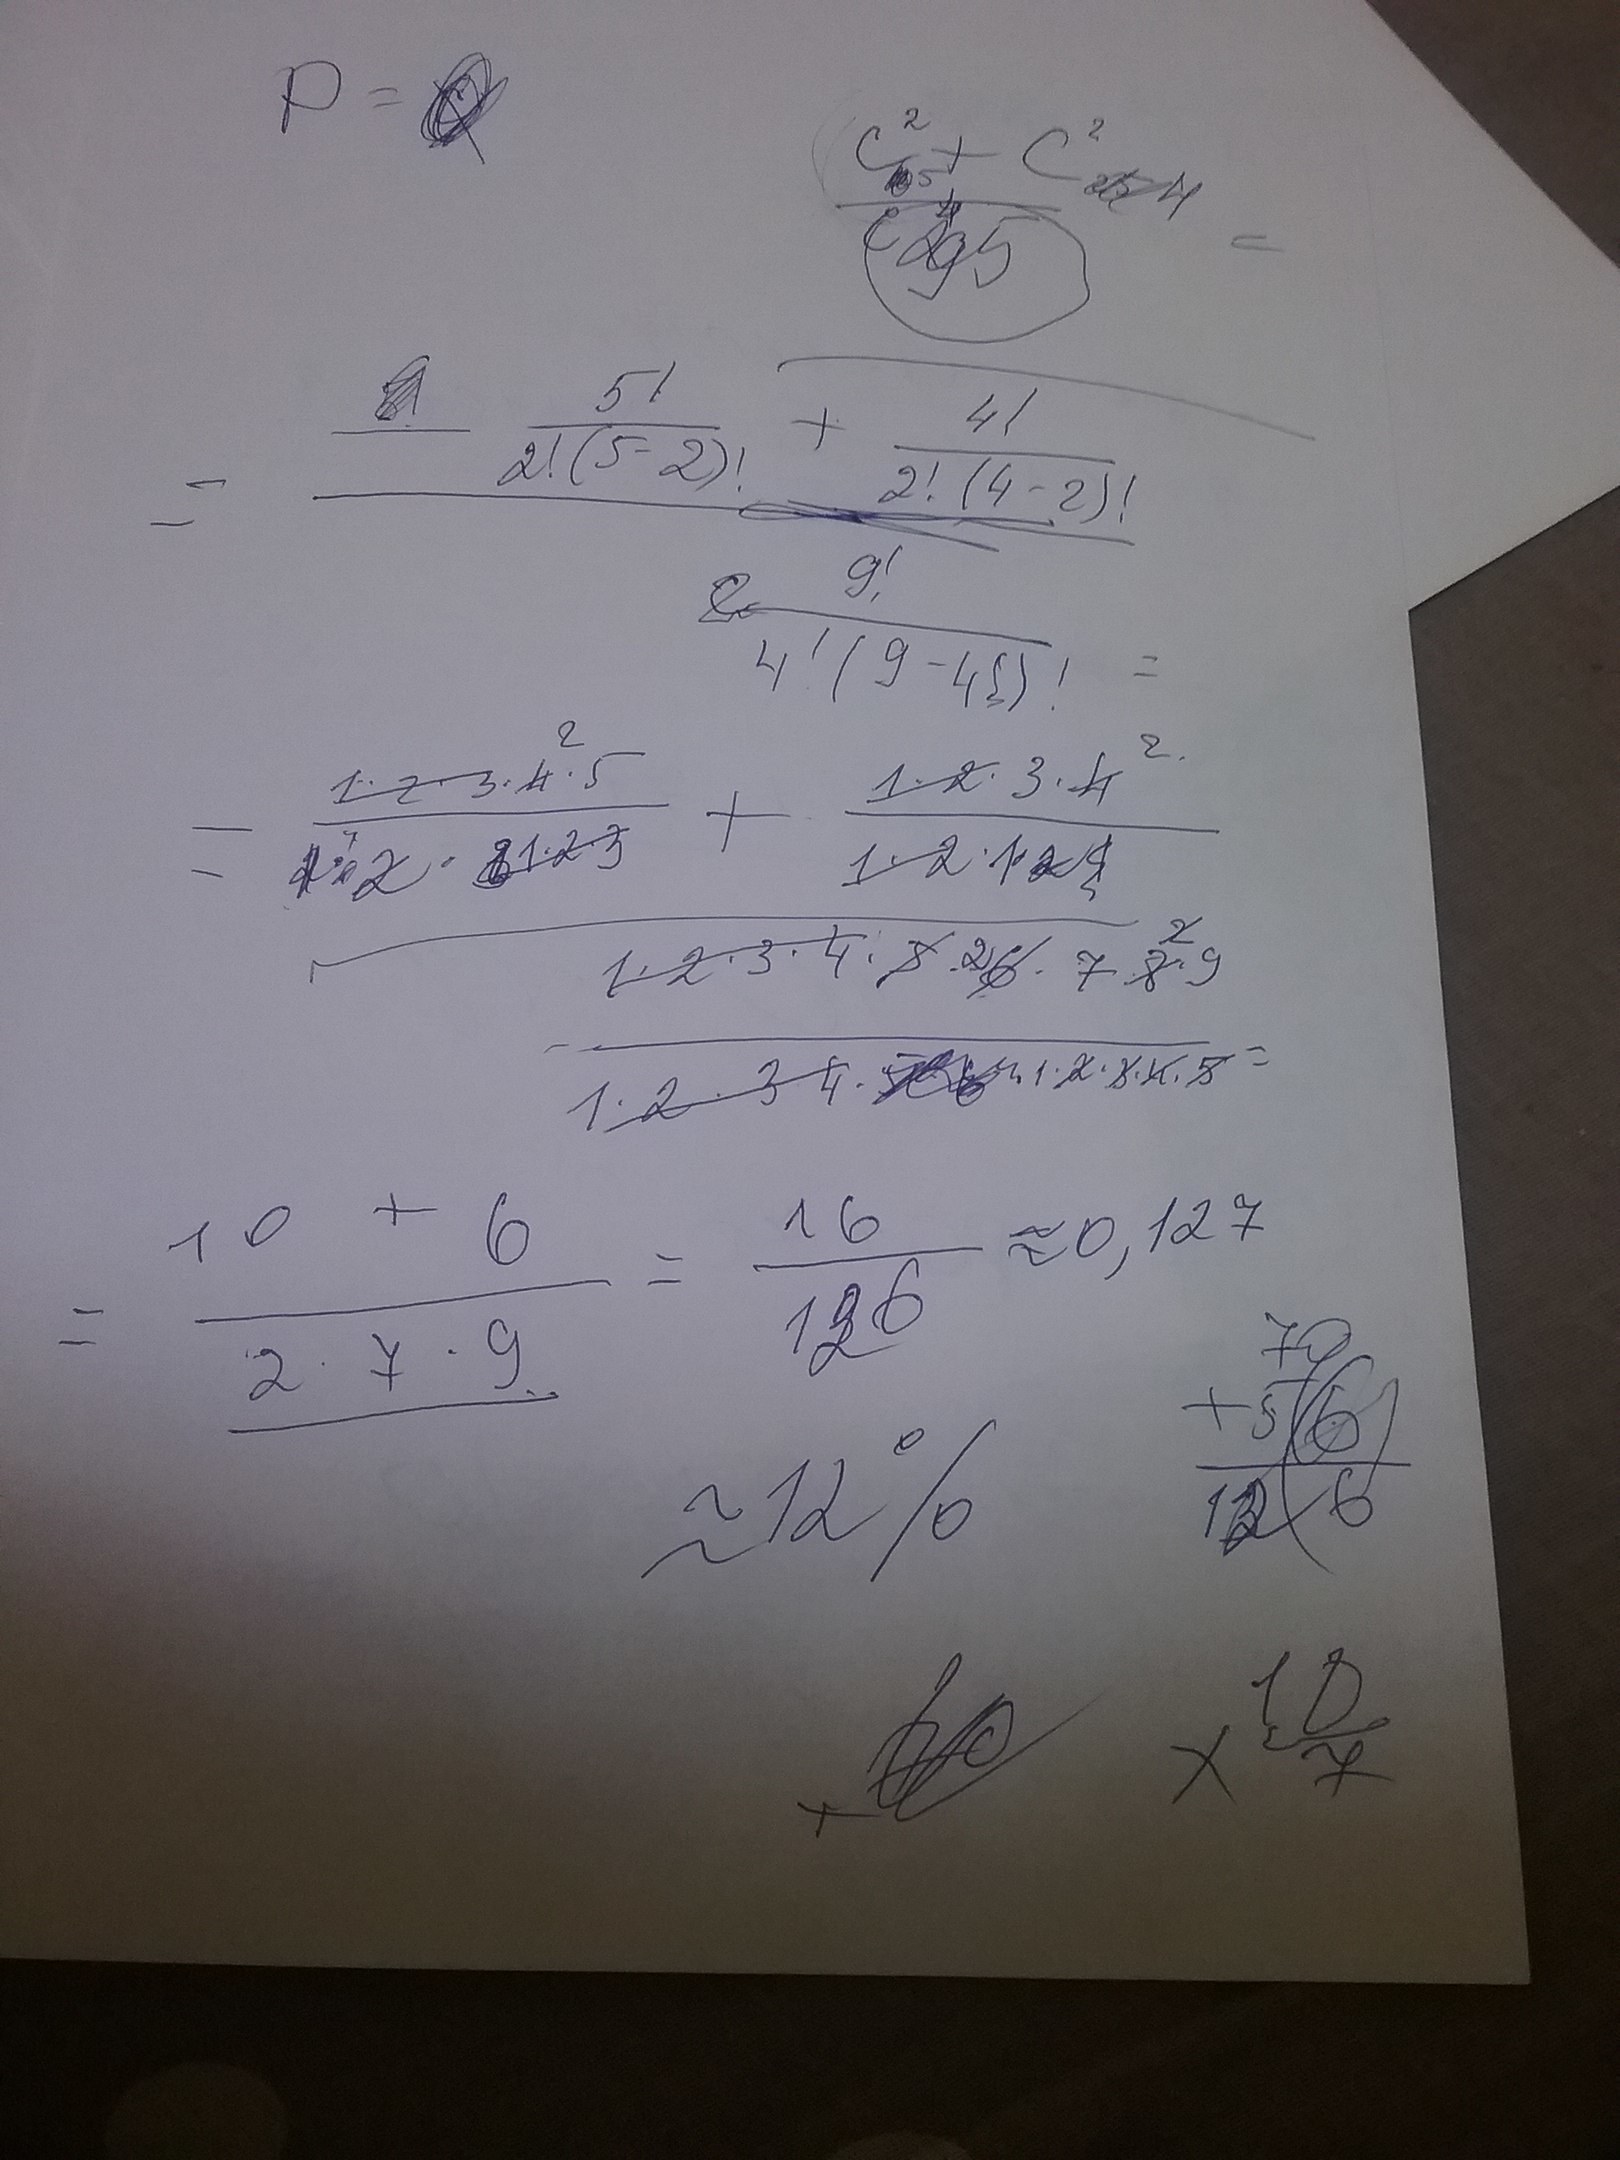 P =
C²₅ + C²₄
C⁴₉ =
= 5! / 2!(5-2)! + 4! / 2!(4-2)!
9! / 4!(9-4)! =
= 1·2·3·4²·5 / 2·1·2·3 + 1·2·3·4² / 1·2·1·2
1·2·3·4·5·2 6·7·8²·9
1·2·3·4·1·2·3·4·5 =
= 10 + 6 / 2·7·9 = 16 / 126 ≈ 0,127
70
+ 56
126
≈ 12%
× 10
7